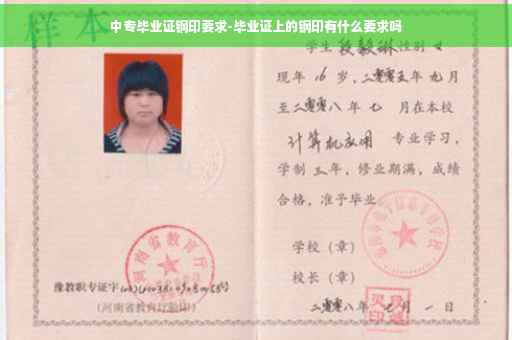 中专毕业证钢印要求-毕业证上的钢印有什么要求吗
样本
学生 段毅琳 性别 女
现年 16 岁，二零零五年 九 月
至二零零八 年 七 月在本校
计算机应用 专业学习，
学制 三 年，修业期满，成绩
合格，准予毕业
学校（章）
校长（章）
二零零八年 月 一 日
河南省教育厅
豫教职专证字
（河南省教育厅验印）